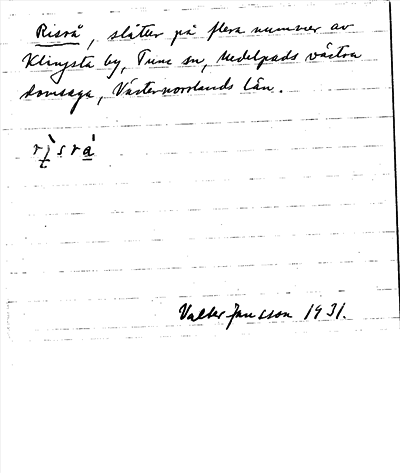 Risrå, slåtter på flera nummer av
Klingsta by, Tuna sn, Medelpads västra
domsaga, Västernorrlands län.
rı̣̀srá̱
Valter Jansson 1931.